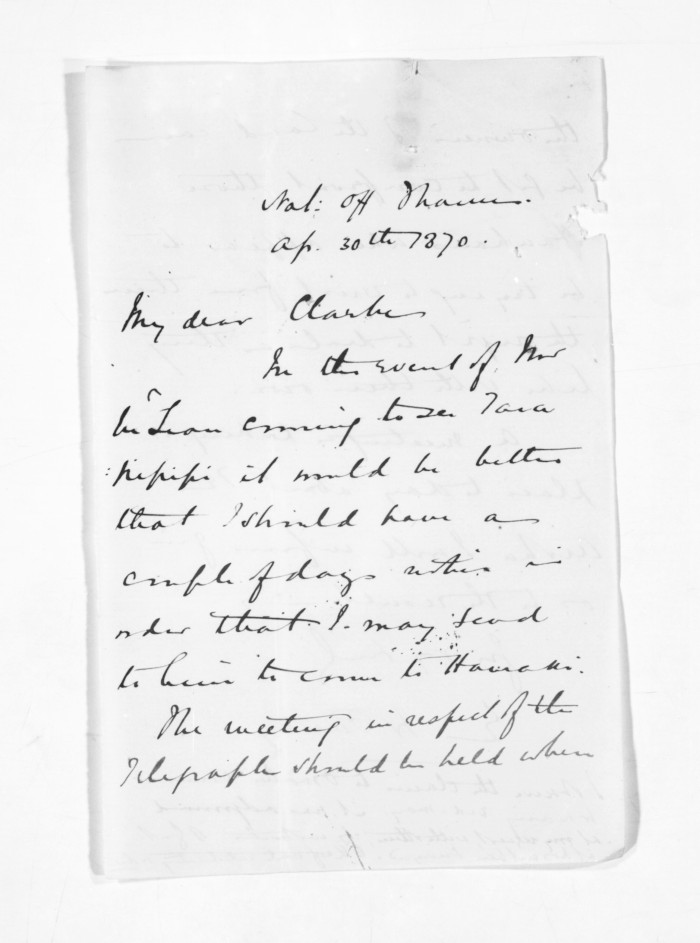 Nat: Off Thames.
Ap. 30th 1870.
My dear Clarke
In the event of Mr
McLean coming to see Tara
:pipipi it would be better
that I should have a
couple of days notice in
order that I may send
to him to come to Hauraki.
The meeting in respect of the
Telegraph should be held where